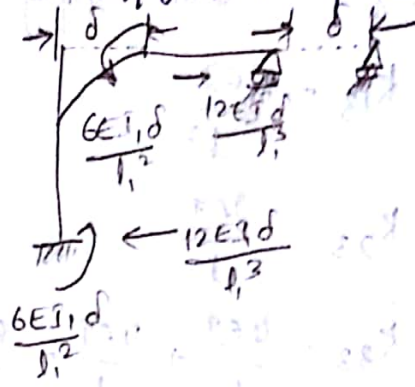 δ δ
6EI₁δ / l₁²
12EI₁δ / l₁³
12EI₁δ / l₁³
6EI₁δ / l₁²